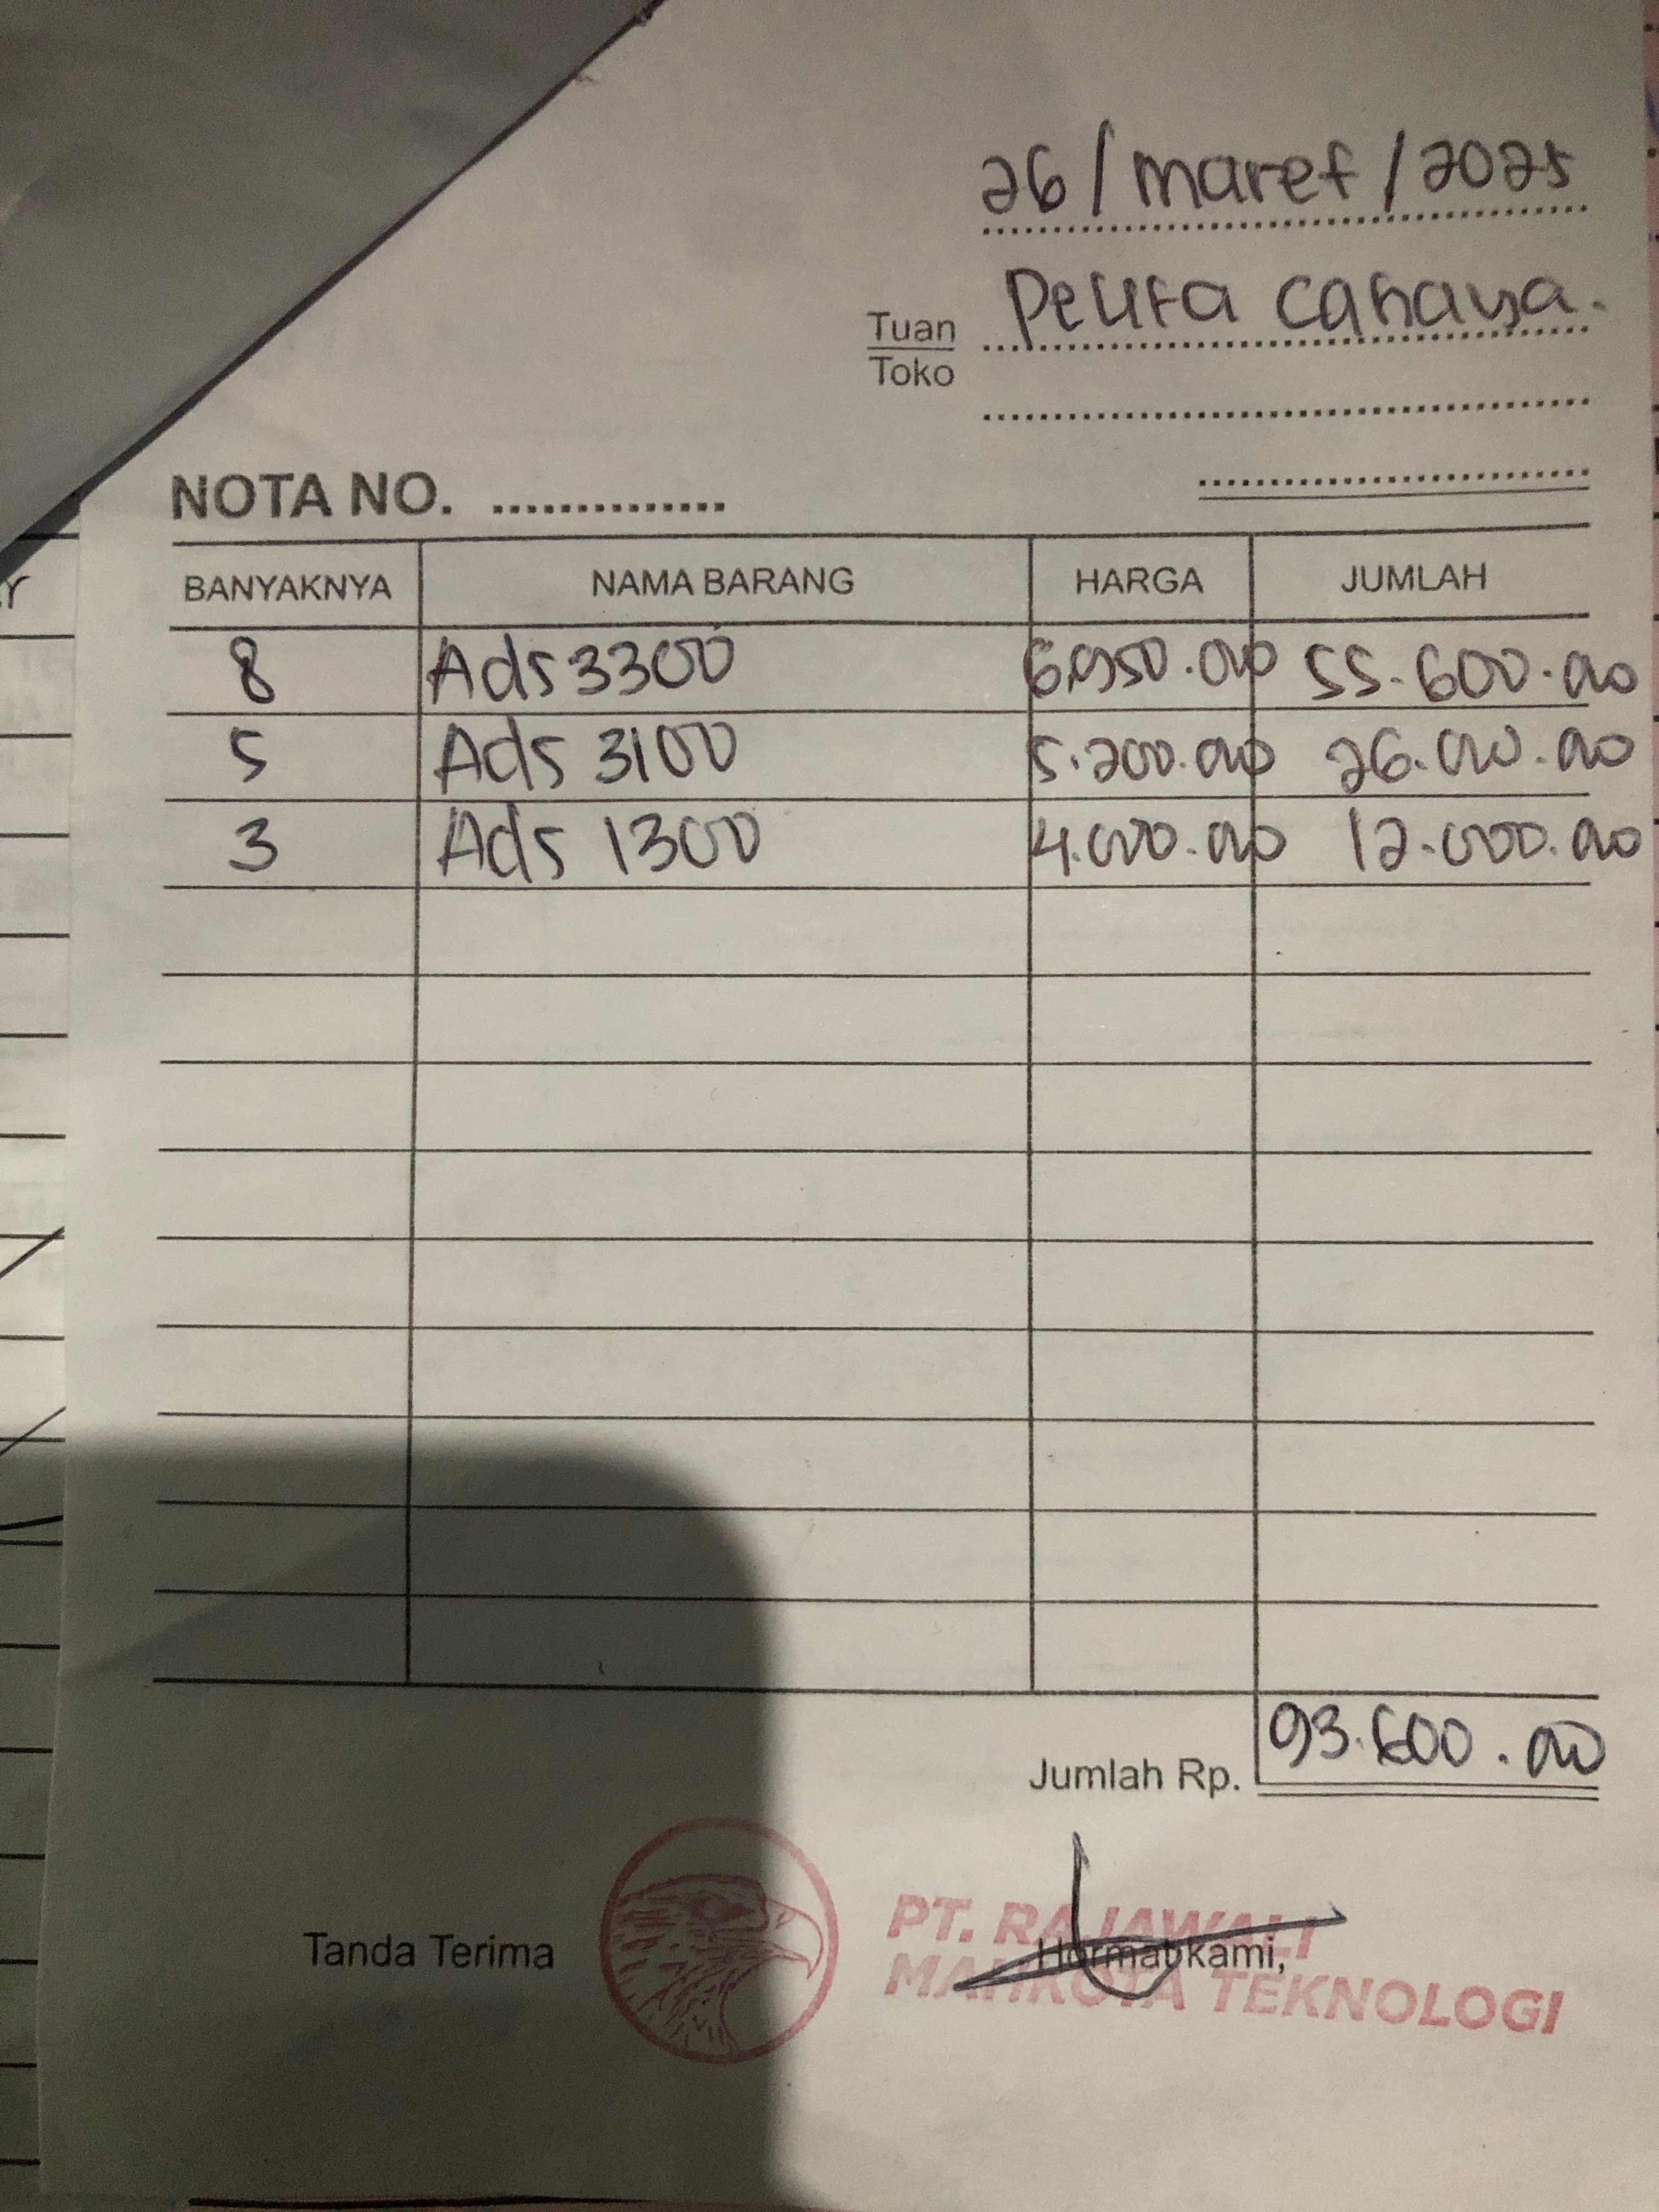 26/maret/2025
Tuan Pelita Cahaya.
Toko
NOTA NO. ..............
BANYAKNYA NAMA BARANG HARGA JUMLAH
8 Ads 3300 6.950.000 55.600.000
5 Ads 3100 5.200.000 26.000.000
3 Ads 1300 4.000.000 12.000.000
Jumlah Rp. 93.600.000
Tanda Terima
Hormat kami,
PT. RAJAWALI
MAHKOTA TEKNOLOGI